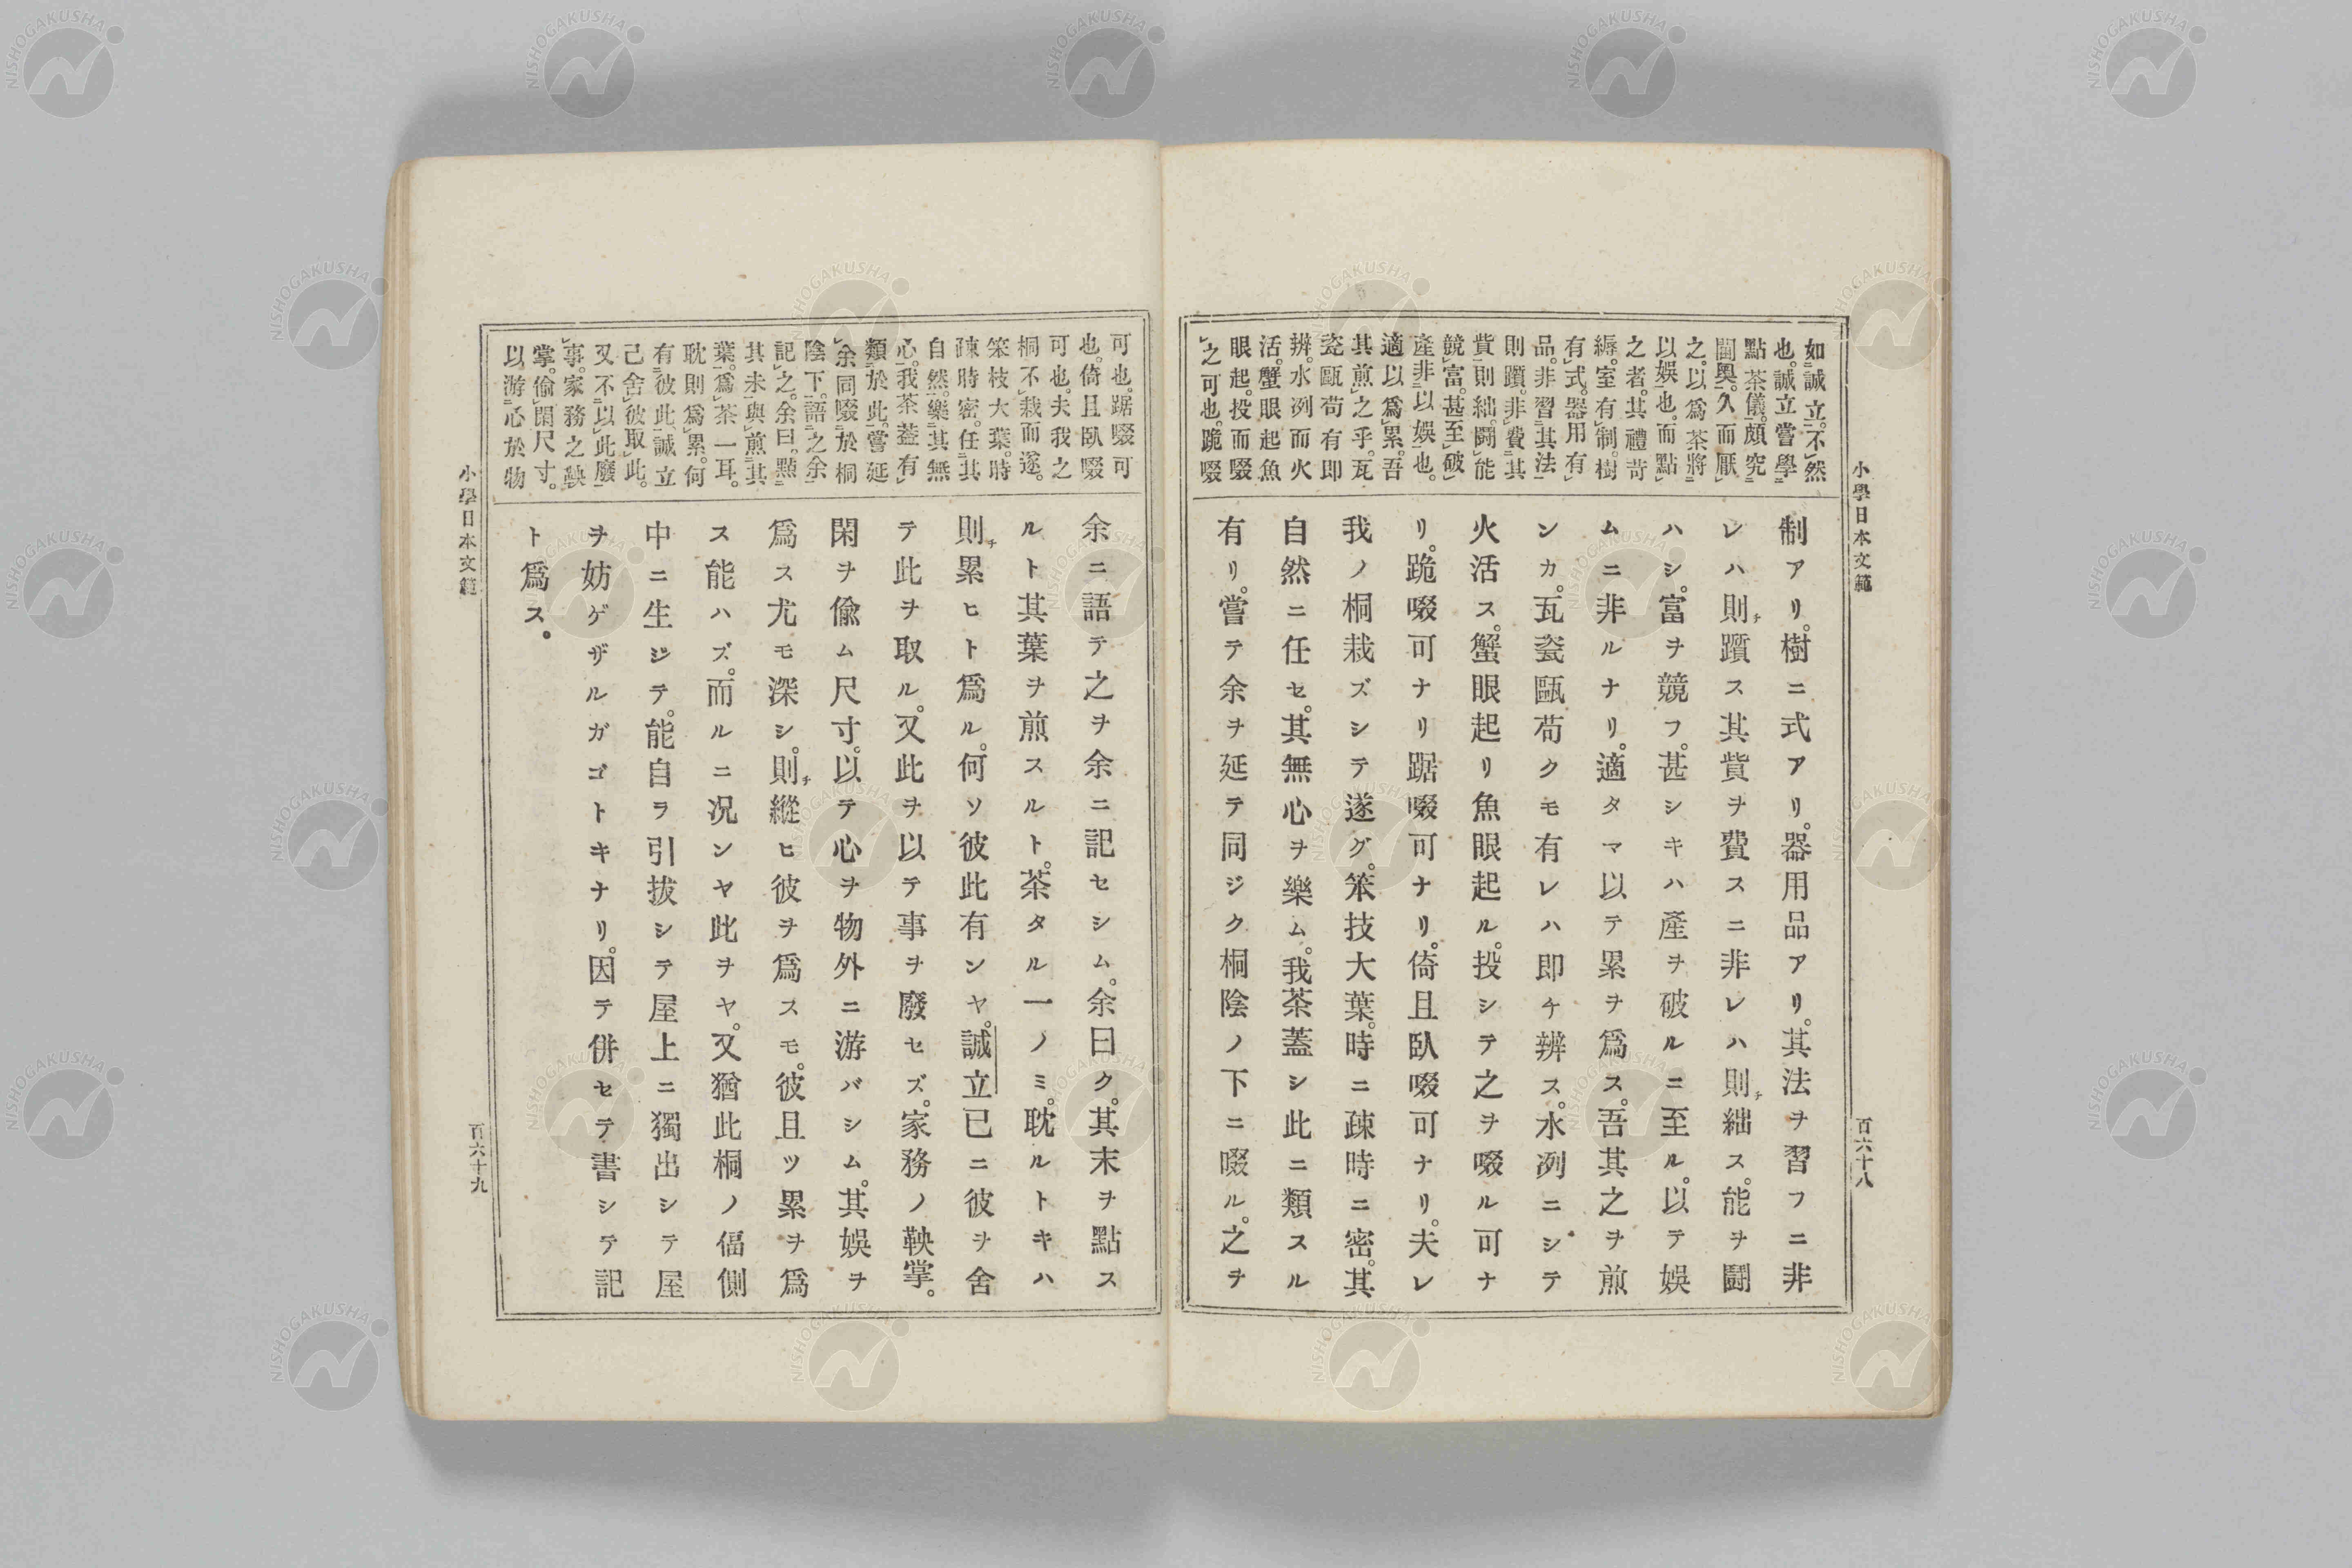 小學日本文範
百六十八
如誠立。不然
也。誠立嘗學
點茶儀。頗究
閫奧。久而厭
之。以爲茶將
以娛也。而點
之者。其禮苛
縟。室有制。樹
有式。器用有
品。非習其法
則躓。非費其
貲則絀。鬪能
競富。甚至破
產。非以娛也。
適以爲累。吾
其煎之乎。瓦
瓷甌苟有即
辨。水冽而火
活。蟹眼起魚
眼起。投而啜
之可也。跪啜
制アリ。樹ニ式アリ。器用品アリ。其法ヲ習フニ非
レハ則チ躓ス其貲ヲ費スニ非レハ則チ絀ス。能ヲ鬪
ハシ。富ヲ競フ。甚シキハ產ヲ破ルニ至ル。以テ娛
ムニ非ルナリ。適タマ以テ累ヲ爲ス。吾其之ヲ煎
ンカ。瓦瓷甌苟クモ有レハ即チ辨ス。水冽ニシテ
火活ス。蟹眼起リ魚眼起ル。投シテ之ヲ啜ル可ナ
リ。跪啜可ナリ踞啜可ナリ。倚且臥啜可ナリ。夫レ
我ノ桐栽ズシテ遂グ。笨技大葉。時ニ疎時ニ密。其
自然ニ任セ。其無心ヲ樂ム。我茶蓋シ此ニ類スル
有リ。嘗テ余ヲ延テ同ジク桐陰ノ下ニ啜ル。之ヲ
可也。踞啜可
也。倚且臥啜
可也。夫我之
桐不栽而遂。
笨枝大葉。時
疎時密。任其
自然。樂其無
心。我茶蓋有
類於此。嘗延
余同啜於桐
陰下。語之余
記之。余曰。點
其末與煎其
葉。爲茶一耳。
耽則爲累。何
有彼此。誠立
己舍彼取此。
又不以此廢
事。家務之鞅
掌。偷閑尺寸。
以游心於物
余ニ語テ之ヲ余ニ記セシム。余曰ク。其末ヲ點ス
ルト其葉ヲ煎スルト。茶タル一ノミ。耽ルトキハ
則チ累ヒト爲ル。何ソ彼此有ンヤ。誠立已ニ彼ヲ舍
テ此ヲ取ル。又此ヲ以テ事ヲ廢セズ。家務ノ鞅掌。
閑ヲ偷ム尺寸。以テ心ヲ物外ニ游バシム。其娛ヲ
爲ス尤モ深シ。則チ縱ヒ彼ヲ爲スモ。彼且ツ累ヲ爲
ス能ハズ。而ルニ況ンヤ此ヲヤ。又猶此桐ノ偪側
中ニ生ジテ。能自ラ引拔シテ屋上ニ獨出シテ屋
ヲ妨ゲザルガゴトキナリ。因テ併セテ書シテ記
ト爲ス。
小學日本文範
百六十九